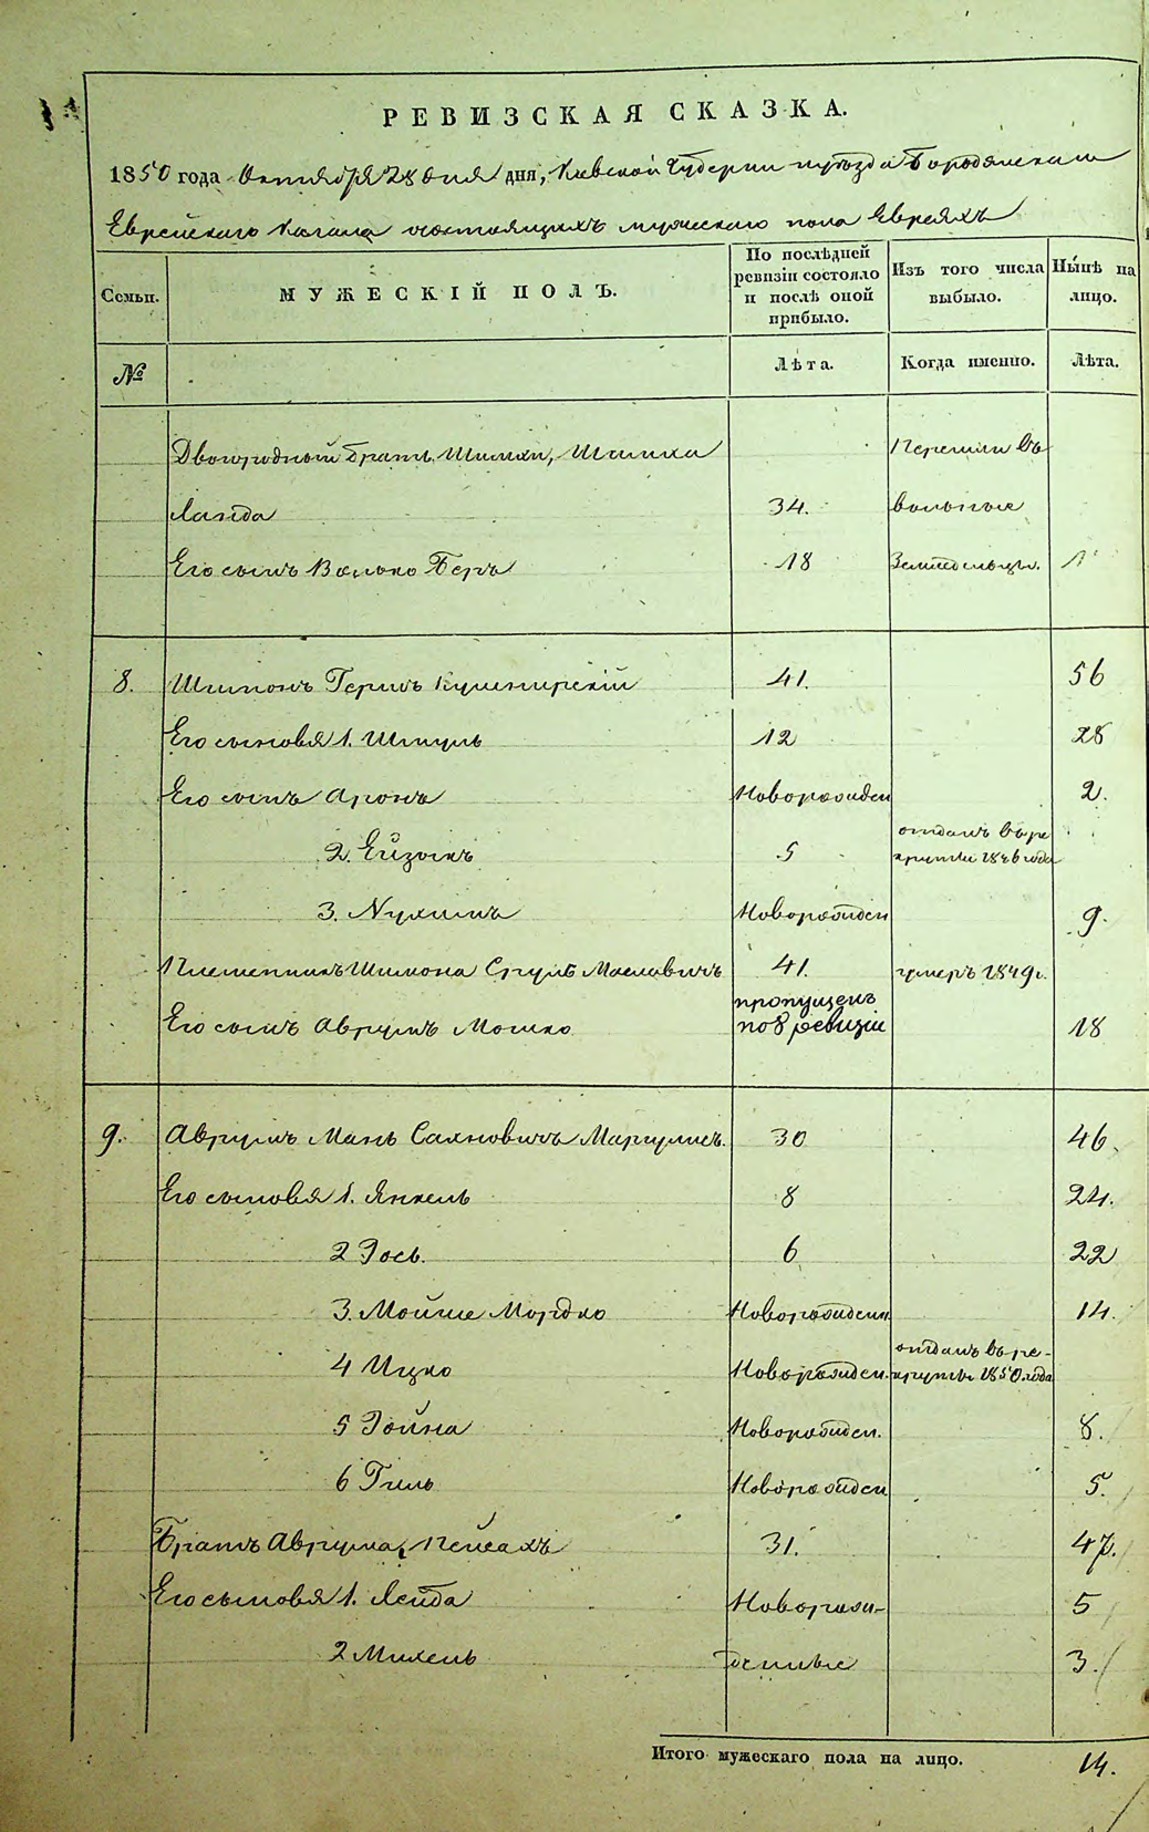 РЕВИЗСКАЯ СКАЗКА.
1850 года Октября 28 дня дня, Киевской Губернии уѣзда Бородянскаго
Еврейскаго Кагала о состоящихъ мужескаго пола Евреяхъ
Семьи.
МУЖЕСКІЙ ПОЛЪ.
По послѣдней
ревизіи состояло
и послѣ оной
прибыло.
Изъ того числа
выбыло.
Нынѣ на
лицо.
№
Лѣта.
Когда именно.
Лѣта.
Двоюродный братъ Шимхи, Шлиома Перешли въ
Ланда 34. вольные
Его сынъ Волько Беръ 18 Земледельцы. 1
8. Шимонъ Гершъ Кушнирскій 41. 56
Его сыновья 1. Шмуль 12 28
Его сынъ Аронъ Новорожден 2.
отданъ въ ре
2. Ейзыкъ 5 круты 1846 года
3. Нухимъ Новорожден 9.
Племенникъ Шимона Сруль Мошковичъ 41. умеръ 1849г.
пропущенъ
Его сынъ Аврумъ Мошко по 8 ревизіи 18
9. Аврумъ Мань Сахновичъ Маргулисъ. 30 46.
Его сыновья 1. Янкель 8 24.
2 Іось. 6 22
3. Мойше Мордко Новорожден. 14.
отданъ въ ре-
4 Ицко Новорожден. круты 1850 года
5 Іойна Новорожден. 8.
6 Гиль Новорожден 5.
Братъ Аврума, Пейсахъ 31. 47.
Его сыновья 1. Лейба Новорож- 5
2 Михель денные 3.
Итого мужескаго пола на лицо. 14.